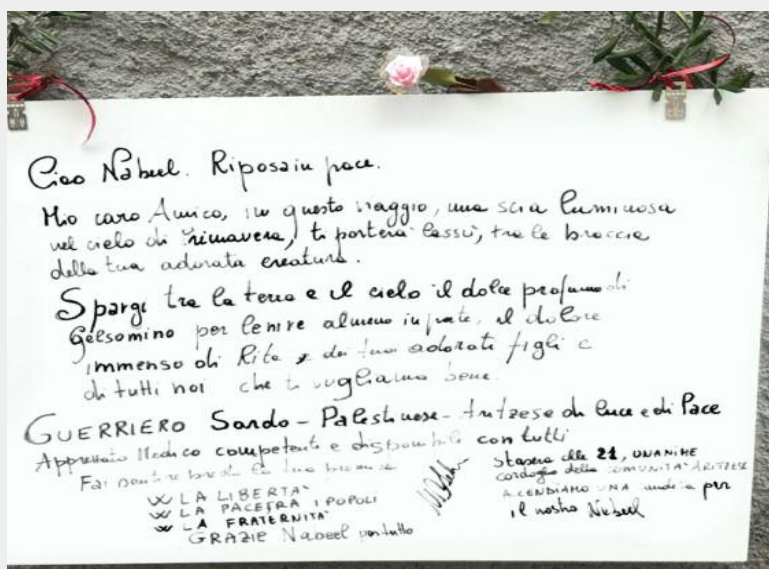 Ciao Nabeel. Riposa in pace.
Mio caro Amico, in questo viaggio, una scia luminosa
nel cielo di Primavera, ti porterà lassù, tra le braccia
della tua adorata creatura.
Spargi tra la terra e il cielo il dolce profumo di
Gelsomino per lenire almeno in parte, il dolore
immenso di Rita e dei tuoi adorati figli e
di tutti noi che ti vogliamo bene.
GUERRIERO Sardo - Palestinese - Aritzese di luce e di Pace
Apprezzato Medico competente e disponibile con tutti
Fai sentire la tua
W LA LIBERTA'
W LA PACE TRA I POPOLI
W LA FRATERNITA'
GRAZIE Nabeel per tutto
Stasera alle 21, UNANIME
cordoglio della COMUNITA' ARITZESE
ACCENDIAMO UNA candela per
il nostro Nabeel